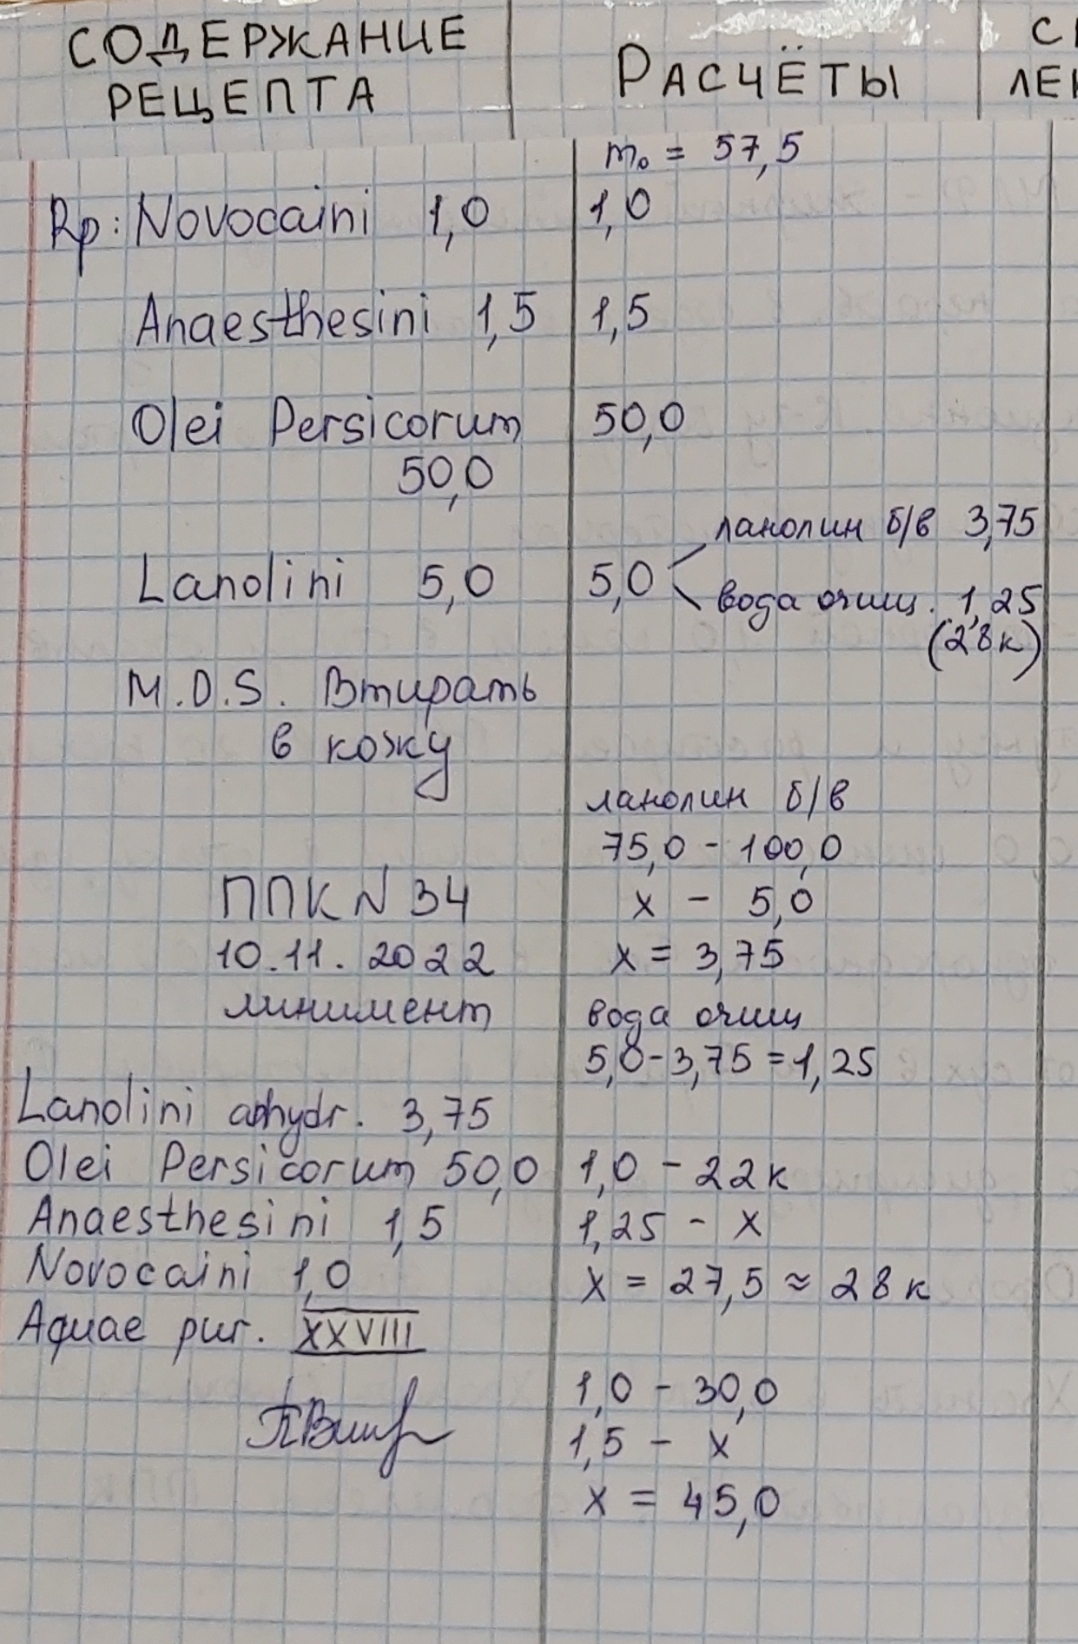 СОДЕРЖАНИЕ
РЕЦЕПТА
Rp: Novocaini 1,0
Anaesthesini 1,5
Olei Persicorum
50,0
Lanolini 5,0
M.D.S. Втирать
в кожу
ППК N 34
10.11.2022
линимент
Lanolini anhydr. 3,75
Olei Persicorum 50,0
Anaesthesini 1,5
Novocaini 1,0
Aquae pur. XXVIII
РАСЧЁТЫ
m₀ = 57,5
1,0
1,5
50,0
ланолин б/в 3,75
5,0
вода очищ. 1,25
(28к)
ланолин б/в
75,0 - 100,0
х - 5,0
х = 3,75
вода очищ
5,0-3,75 = 1,25
1,0 - 22к
1,25 - х
х = 27,5 ≈ 28к
1,0 - 30,0
1,5 - х
х = 45,0